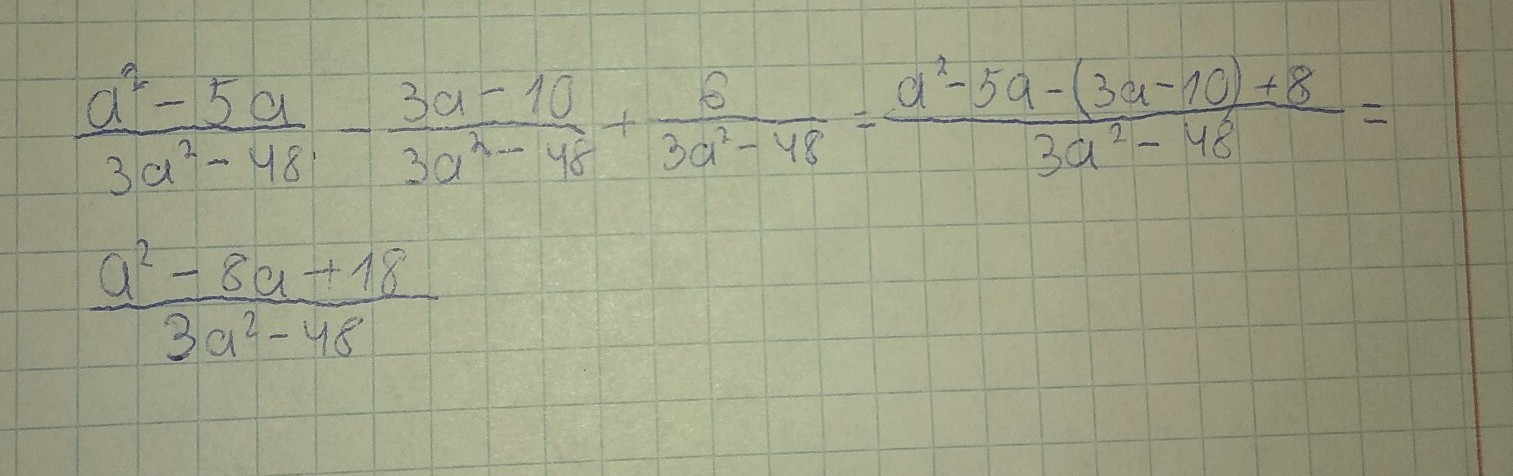 (a² - 5a)/(3a² - 48) - (3a - 10)/(3a² - 48) + 6/(3a² - 48) = (a² - 5a - (3a - 10) + 8)/(3a² - 48) =
(a² - 8a + 18)/(3a² - 48)